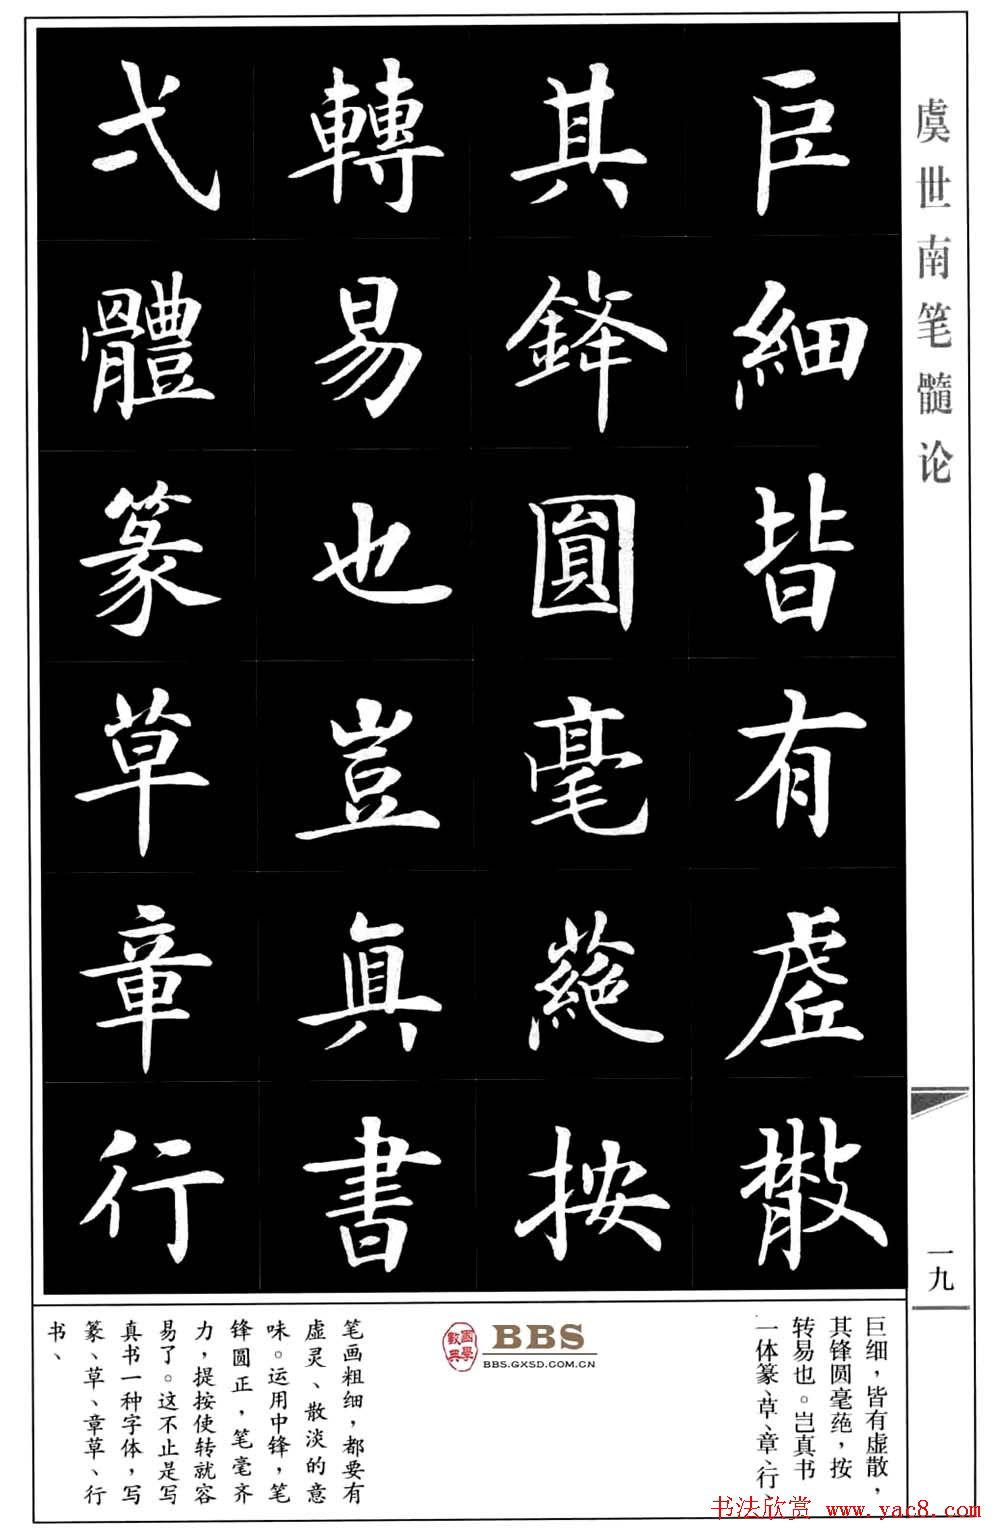 虞世南笔髓论
一九
巨細皆有虛散
其鋒圓毫蕝按
轉易也豈真書
弌體篆草章行
巨细，皆有虚散，
其锋圆毫蕝，按
转易也。岂真书
一体篆、草、章、行、
國學數典
BBS
BBS.GXSD.COM.CN
笔画粗细，都要有
虚灵、散淡的意
味。运用中锋，笔
锋圆正，笔毫齐
力，提按使转就容
易了。这不止是写
真书一种字体，写
篆、草、章草、行
书、
书法欣赏 www.yac8.com